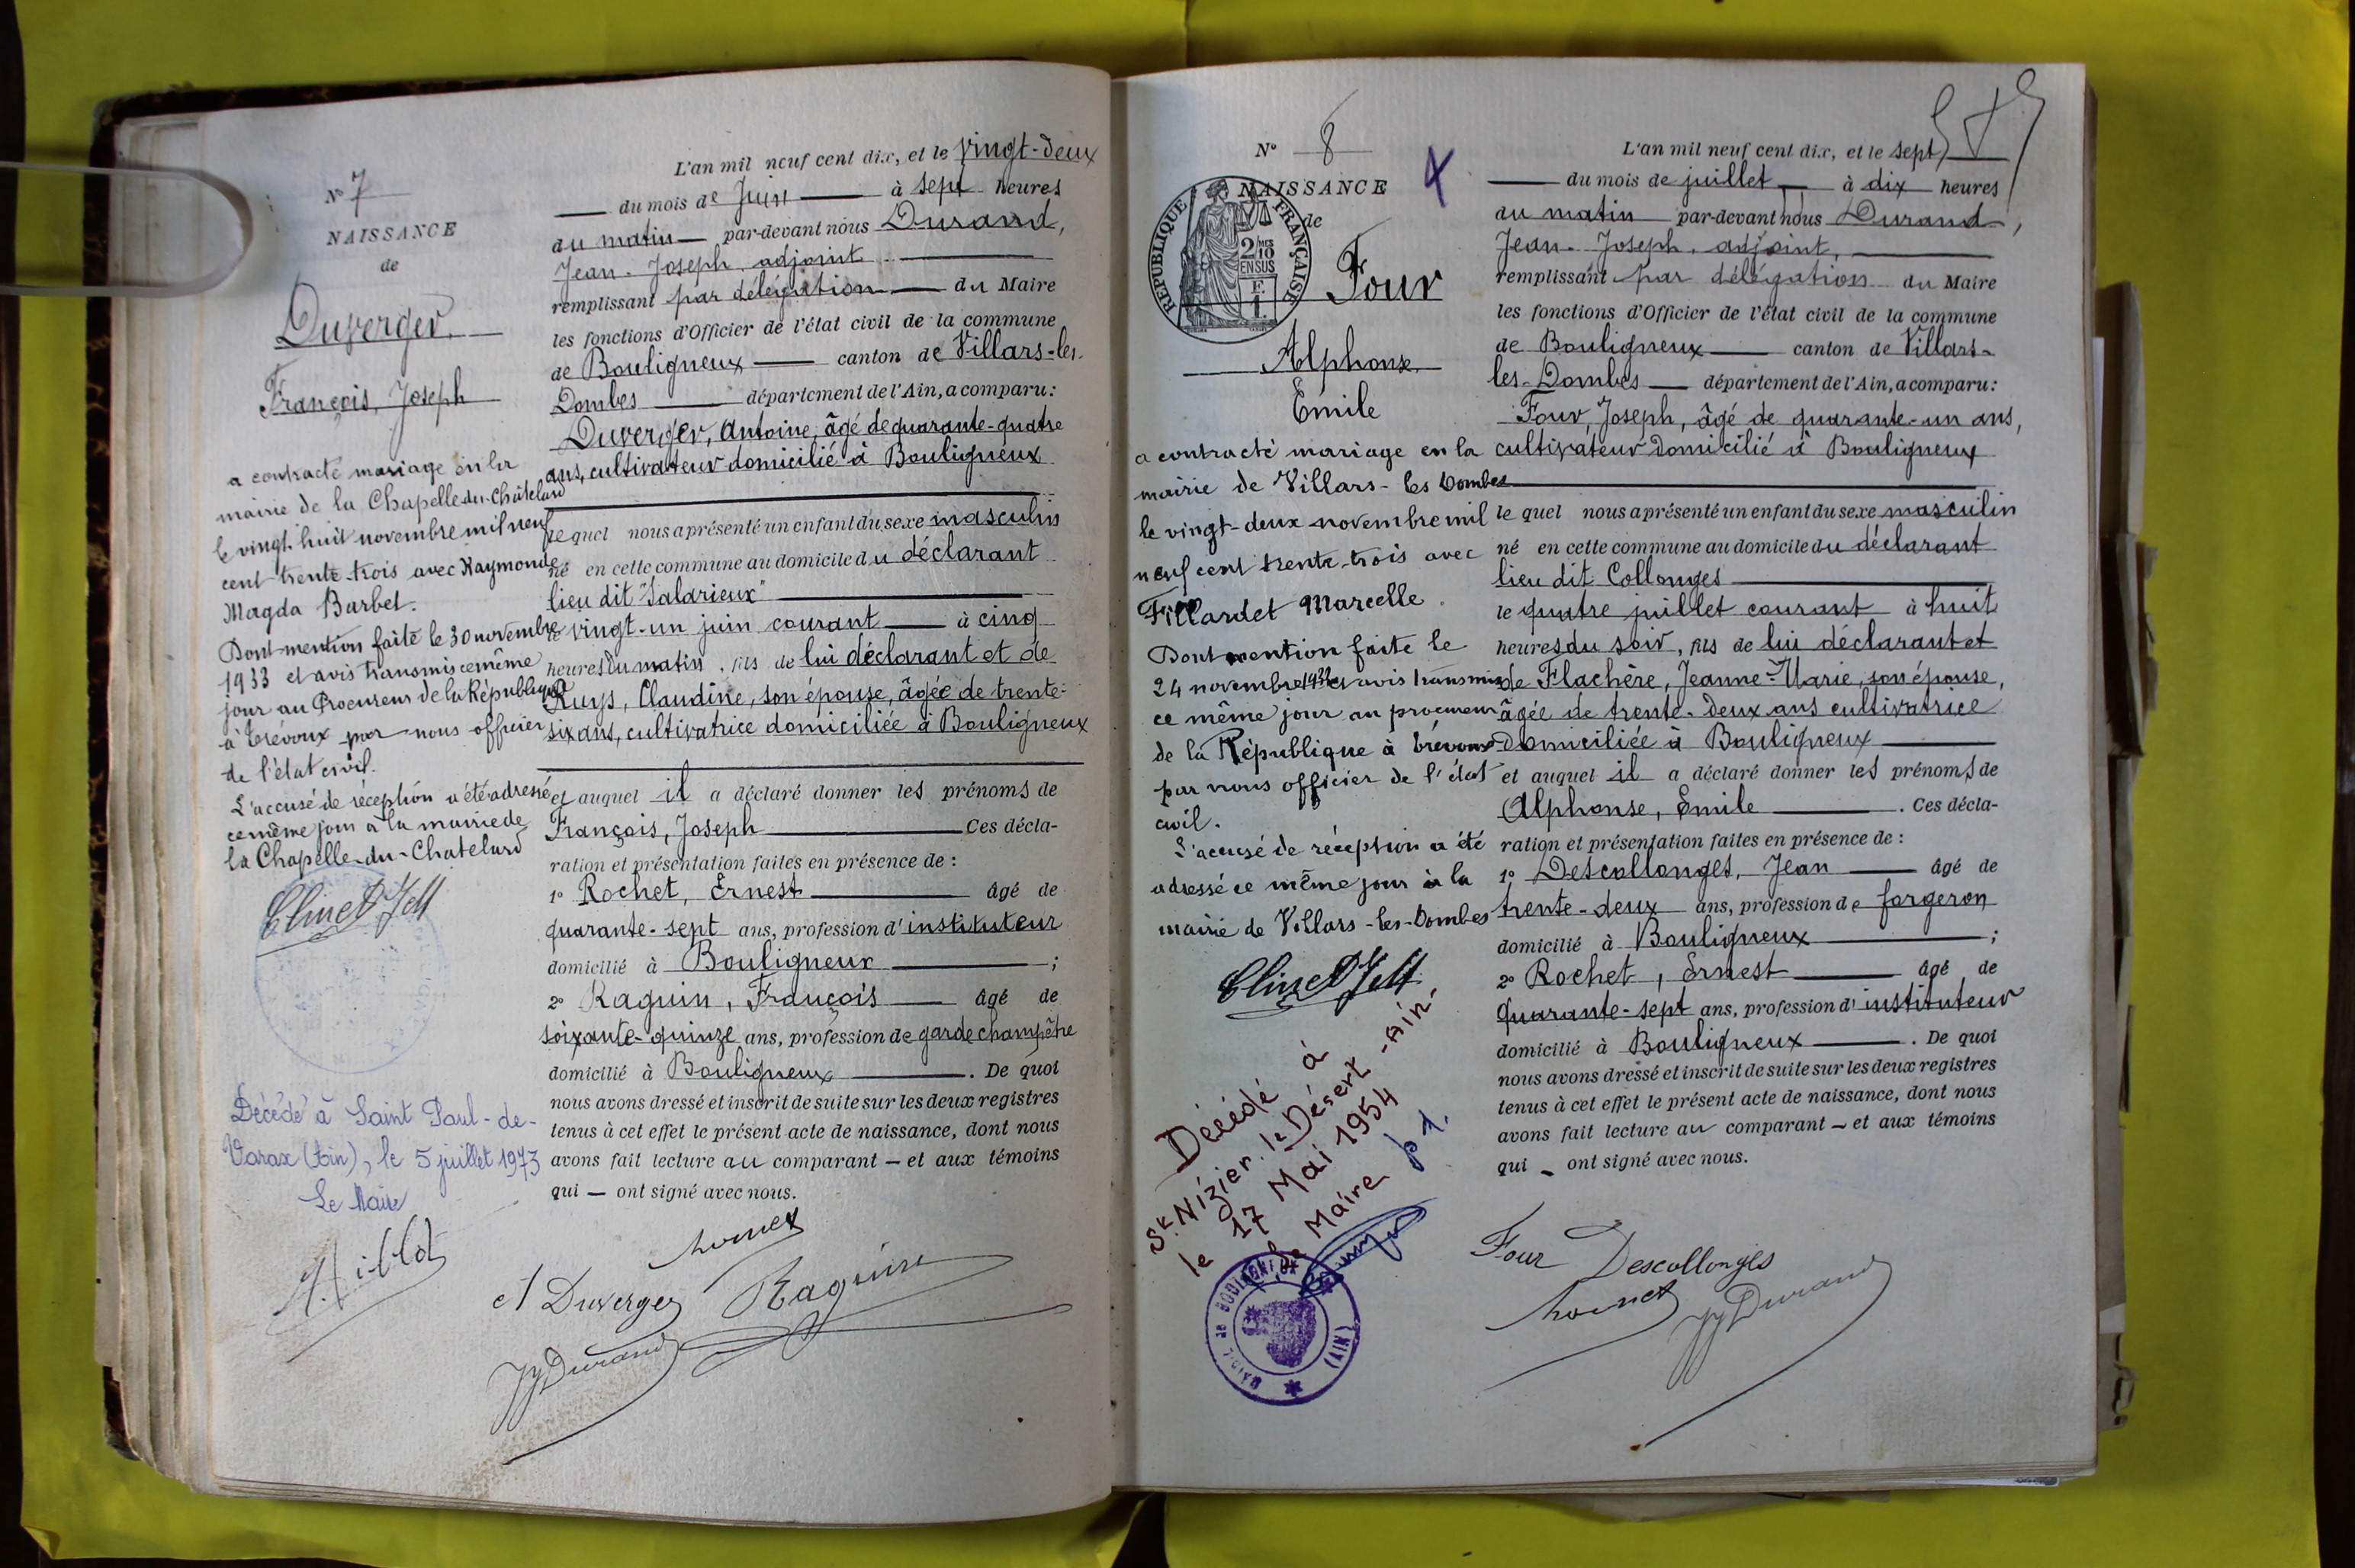 N° 7
NAISSANCE
de
Duverger
François, Joseph
a contracté mariage en la
mairie de la Chapelle-du-Châtelard
le vingt-huit novembre mil neuf
cent trente-trois avec Raymonde
Magda Barbet.
Dont mention faite le 30 novembre
1933 et avis transmis ce même
jour au Procureur de la République
à Trévoux par nous officier
de l'état civil.
L'accusé de réception a été adressé
ce même jour à la mairie de
la Chapelle-du-Chatelard
Décédé à Saint Paul-de-
Varax (Ain), le 5 juillet 1973
Le Maire
L'an mil neuf cent dix, et le vingt-deux
du mois de Juin à sept heures
du matin par-devant nous Durand,
Jean-Joseph, adjoint
remplissant par délégation du Maire
les fonctions d'Officier de l'état civil de la commune
de Bouligneux canton de Villars-les-
Dombes département de l'Ain, a comparu:
Duverger, Antoine, âgé de quarante-quatre
ans, cultivateur domicilié à Bouligneux
lequel nous a présenté un enfant du sexe masculin
né en cette commune au domicile du déclarant
lieu dit "Salarieux"
le vingt-un juin courant à cinq
heures du matin, fils de lui déclarant et de
Ruys, Claudine, son épouse, âgée de trente-
six ans, cultivatrice domiciliée à Bouligneux
et auquel il a déclaré donner les prénoms de
François, Joseph Ces décla-
ration et présentation faites en présence de :
1° Rochet, Ernest âgé de
quarante-sept ans, profession d'instituteur
domicilié à Bouligneux ;
2° Raguin, François âgé de
soixante-quinze ans, profession de garde champêtre
domicilié à Bouligneux . De quoi
nous avons dressé et inscrit de suite sur les deux registres
tenus à cet effet le présent acte de naissance, dont nous
avons fait lecture au comparant — et aux témoins
qui — ont signé avec nous.
Rochet
A Duverger Raguin
JJ Durand
N° 8
NAISSANCE
de
RÉPUBLIQUE FRANÇAISE
2/10 MES
EN SUS
F.
1.
Four
Alphonse
Emile
a contracté mariage en la
mairie de Villars-les Dombes
le vingt-deux novembre mil
neuf cent trente-trois avec
Fillardet Marcelle.
Dont mention faite le
24 novembre 1933 et avis transmis
ce même jour au procureur
de la République à Trévoux
par nous officier de l'état
civil.
L'accusé de réception a été
adressé ce même jour à la
mairie de Villars-les-Dombes
Décédé à
St Nizier-le-Désert -Ain-
le 17 Mai 1954
Le Maire
MAIRIE de BOULIGNEUX
(AIN)
L'an mil neuf cent dix, et le sept
du mois de juillet à dix heures
du matin par-devant nous Durand,
Jean-Joseph, adjoint,
remplissant par délégation du Maire
les fonctions d'Officier de l'état civil de la commune
de Bouligneux canton de Villars-
les-Dombes département de l'Ain, a comparu:
Four, Joseph, âgé de quarante-un ans,
cultivateur domicilié à Bouligneux
lequel nous a présenté un enfant du sexe masculin
né en cette commune au domicile du déclarant
lieu dit Collonges
le quatre juillet courant à huit
heures du soir, fils de lui déclarant et
de Flachère, Jeanne-Marie, son épouse,
âgée de trente-deux ans cultivatrice
domiciliée à Bouligneux
et auquel il a déclaré donner les prénoms de
Alphonse, Emile . Ces décla-
ration et présentation faites en présence de :
1° Descollonges, Jean âgé de
trente-deux ans, profession de forgeron
domicilié à Bouligneux ;
2° Rochet, Ernest âgé de
quarante-sept ans, profession d'instituteur
domicilié à Bouligneux . De quoi
nous avons dressé et inscrit de suite sur les deux registres
tenus à cet effet le présent acte de naissance, dont nous
avons fait lecture au comparant — et aux témoins
qui — ont signé avec nous.
Four Descollonges
Rochet JJ Durand